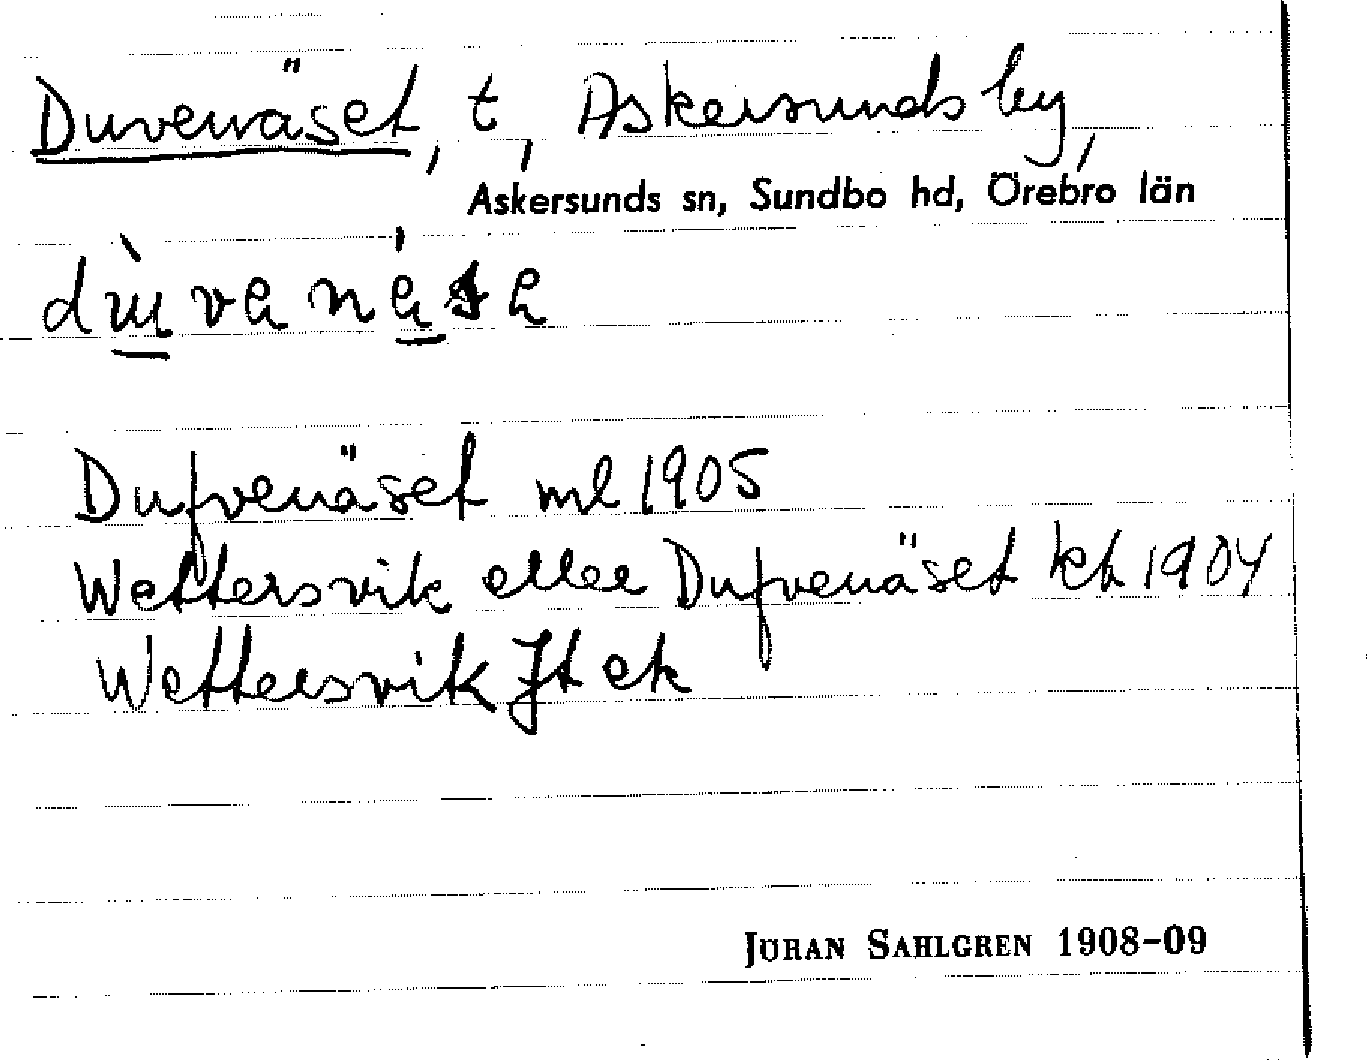 Duvenäset, t, Askersunds by,
Askersunds sn, Sundbo hd, Örebro län
Dufvenäset ml 1905
Wettersvik eller Dufvenäset kt 1904
Wettersvik Jt ek
JÖRAN SAHLGREN 1908–09